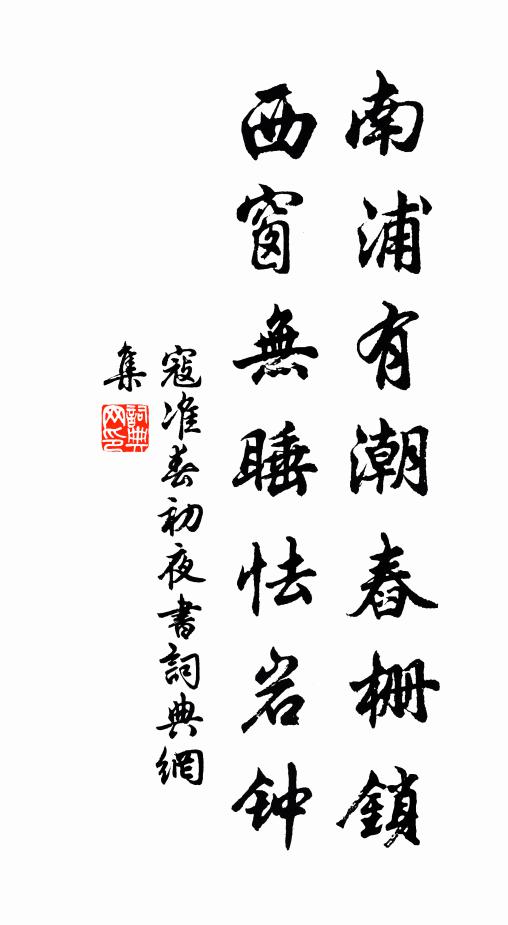 南浦有潮舂栅鎖
西窗無睡怯岩钟
寇准春初夜書詞典網
集
詞典网印